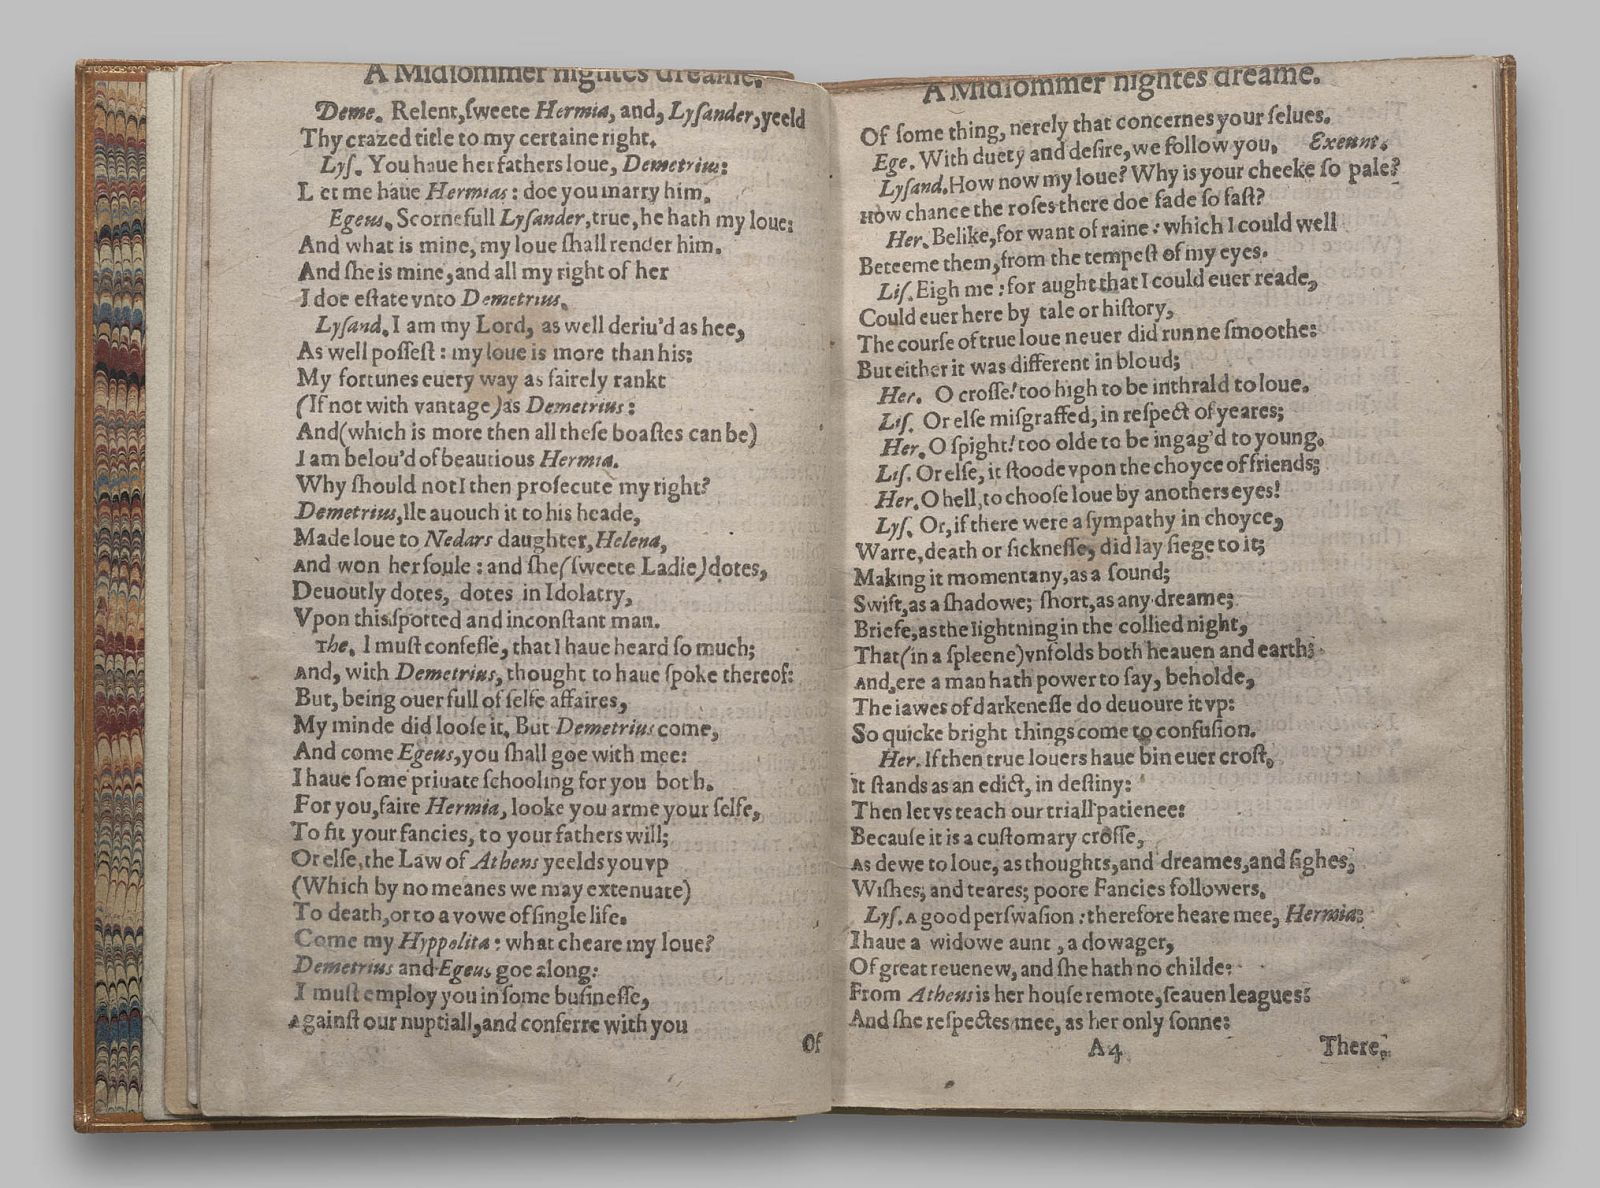 A Midsommer nightes dreame.
Deme. Relent, ſweete Hermia, and, Lyſander, yeeld
Thy crazed title to my certaine right.
Lyſ. You haue her fathers loue, Demetrius:
Let me haue Hermias: doe you marry him.
Egeus. Scornefull Lyſander, true, he hath my loue:
And what is mine, my loue ſhall render him.
And ſhe is mine, and all my right of her
I doe eſtate vnto Demetrius.
Lyſand. I am my Lord, as well deriu'd as hee,
As well poſſeſt: my loue is more than his:
My fortunes euery way as fairely rankt
(If not with vantage) as Demetrius:
And (which is more then all theſe boaſtes can be)
I am belou'd of beautious Hermia.
Why ſhould not I then proſecute my right?
Demetrius, Ile auouch it to his heade,
Made loue to Nedars daughter, Helena,
And won her ſoule: and ſhe (ſweete Ladie) dotes,
Deuoutly dotes, dotes in Idolatry,
Vpon this ſpotted and inconſtant man.
The. I muſt confeſſe, that I haue heard ſo much;
And, with Demetrius, thought to haue ſpoke thereof:
But, being ouer full of ſelfe affaires,
My minde did looſe it. But Demetrius come,
And come Egeus, you ſhall goe with mee:
I haue ſome priuate ſchooling for you both.
For you, faire Hermia, looke you arme your ſelfe,
To fit your fancies, to your fathers will;
Or elſe, the Law of Athens yeelds you vp
(Which by no meanes we may extenuate)
To death, or to a vowe of ſingle life.
Come my Hyppolita: what cheare my loue?
Demetrius and Egeus goe along:
I muſt employ you in ſome buſineſſe,
Againſt our nuptiall, and conferre with you
Of
A Midsommer nightes dreame.
Of ſome thing, nerely that concernes your ſelues.
Ege. With duety and deſire, we follow you. Exeunt.
Lyſand. How now my loue? Why is your cheeke ſo pale?
How chance the roſes there doe fade ſo faſt?
Her. Belike, for want of raine: which I could well
Beteeme them, from the tempeſt of my eyes.
Liſ. Eigh me: for aught that I could euer reade,
Could euer here by tale or hiſtory,
The courſe of true loue neuer did runne ſmoothe:
But either it was different in bloud;
Her. O croſſe! too high to be inthrald to loue.
Liſ. Or elſe miſgraffed, in reſpect of yeares;
Her. O ſpight! too olde to be ingag'd to young.
Liſ. Or elſe, it ſtoode vpon the choyce of friends;
Her. O hell, to chooſe loue by anothers eyes!
Lyſ. Or, if there were a ſympathy in choyce,
Warre, death or ſickneſſe, did lay ſiege to it;
Making it momentany, as a ſound;
Swift, as a ſhadowe; ſhort, as any dreame;
Briefe, as the lightning in the collied night,
That (in a ſpleene) vnfolds both heauen and earth;
And, ere a man hath power to ſay, beholde,
The iawes of darkeneſſe do deuoure it vp:
So quicke bright things come to confuſion.
Her. If then true louers haue bin euer croſt,
It ſtands as an edict, in deſtiny:
Then let vs teach our triall patience:
Becauſe it is a cuſtomary croſſe,
As dewe to loue, as thoughts, and dreames, and ſighes,
Wiſhes; and teares; poore Fancies followers.
Lyſ. A good perſwaſion: therefore heare mee, Hermia:
I haue a widowe aunt, a dowager,
Of great reuenew, and ſhe hath no childe:
From Athens is her houſe remote, ſeauen leagues:
And ſhe reſpectes mee, as her only ſonne:
A4 There